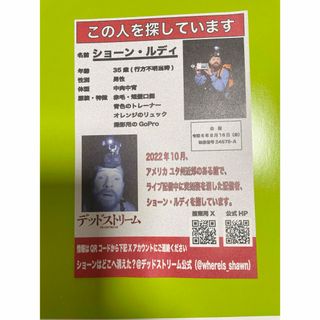 この人を探しています
名前 ショーン・ルディ
年齢 35歳(行方不明当時)
性別 男性
体型 中肉中背
服装・特徴 赤毛・短髪口髭
青色のトレーナー
オレンジのリュック
撮影用のGoPro
会報
令和6年8月16日(金)
2022年10月、
アメリカ ユタ州近郊のある館で、
ライブ配信中に突如姿を消した配信者、
ショーン・ルディを探しています。
デッドストリーム
捜索用X 公式HP
情報はQRコードから下記Xアカウントにご連絡ください
ショーンはどこへ消えた?@デッドストリーム公式(@whereis_shawn)